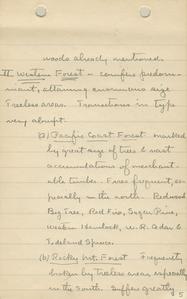 woods already mentioned.
III Western Forest - conifers predom-
inant, attaining enormous size
Treeless areas. Transitions in type
very abrupt.
(a) Pacific Coast Forest marked
by great size of trees & vast
accumulations of merchant-
able timber. Fires frequent, es-
pecially in the north. Redwood
Big Tree, Red Fir, Sugar Pine,
Western Hemlock, W. R. Cedar &
Tideland Spruce.
(b) Rocky Mt. Forest Frequently
broken by treeless areas especially
in the South. Suffers greatly
5